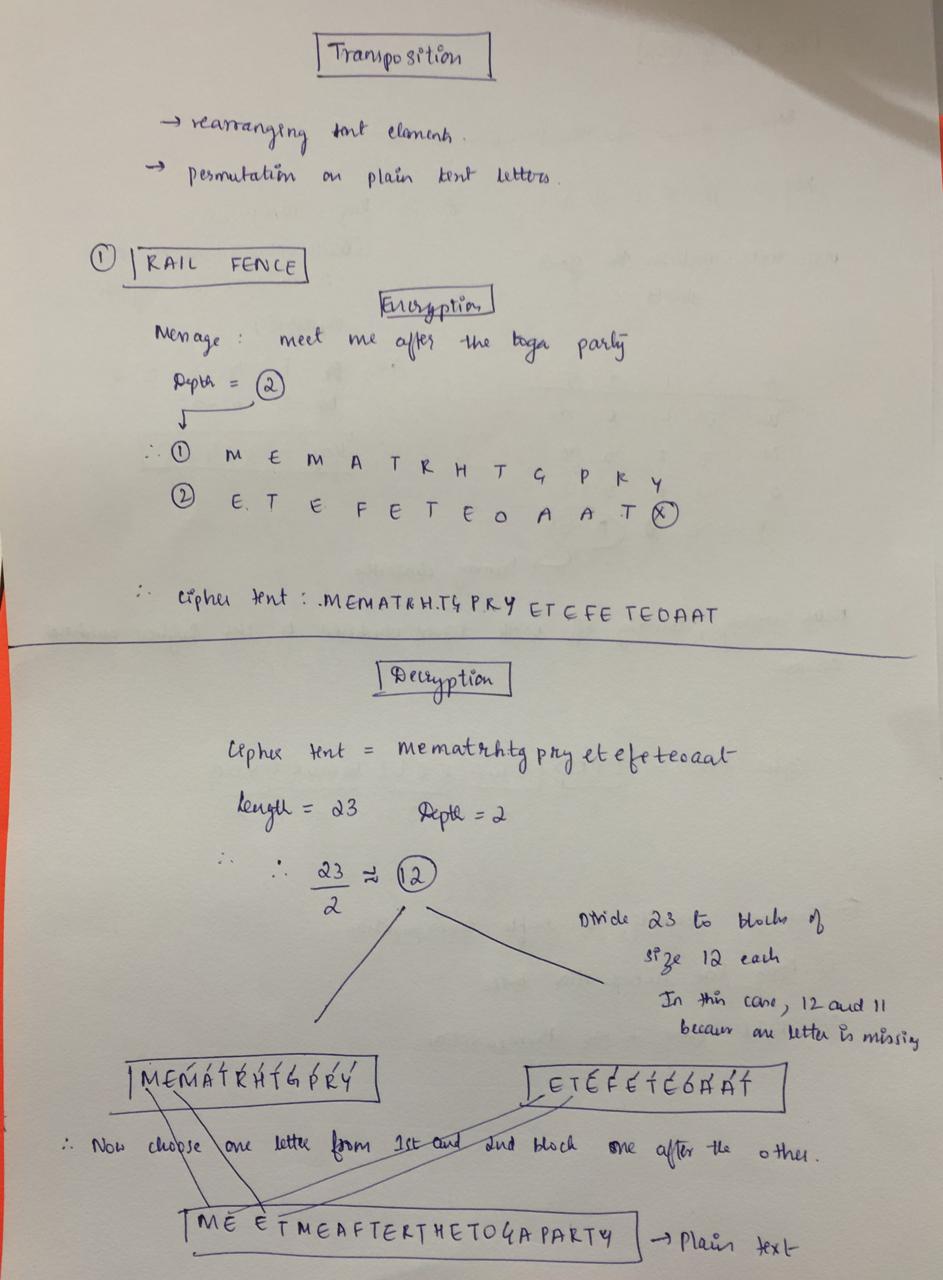 Transposition
→ rearranging text elements.
→ permutation on plain text letters.
① RAIL FENCE
Encryption
Message : meet me after the toga party
Depth = ②
∴ ① M E M A T R H T G P R Y
② E T E F E T E O A A T Ⓧ
∴ Cipher text : MEMATRHTGPRY ETEFETEOAAT
Decryption
Cipher text = mematrhtgpryetefeteoaat
Length = 23 Depth = 2
∴ ∴ 23/2 ≈ ⑫
Divide 23 to blocks of
size 12 each
In this case, 12 and 11
because one letter is missing
MEMATRHTGPRY ETEFETEOAAT
∴ Now choose one letter from 1st and 2nd block one after the other.
MEETMEAFTERTHETOGAPARTY → Plain text